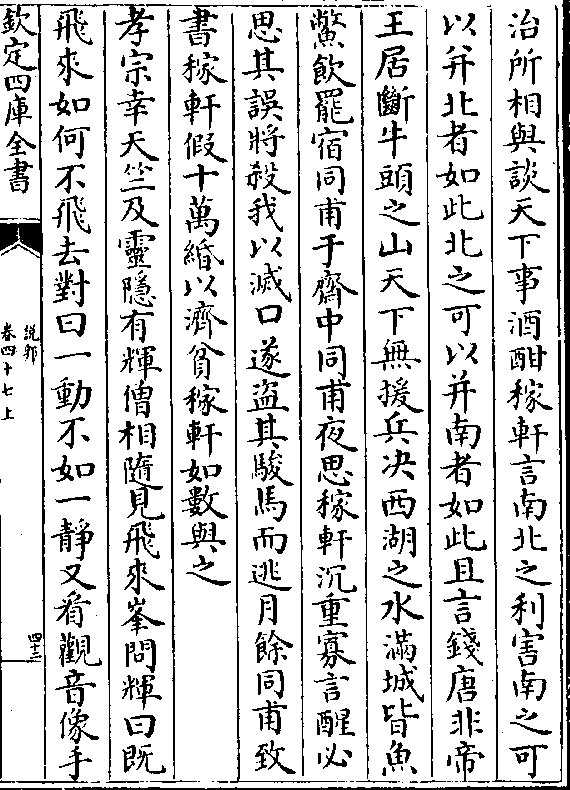 治所相與談天下事酒酣稼軒言南北之利害南之可
以并北者如此北之可以并南者如此且言錢唐非帝
王居斷牛頭之山天下無援兵决西湖之水滿城皆魚
鱉飲罷宿同甫于齋中同甫夜思稼軒沉重寡言醒必
思其誤將殺我以滅口遂盜其駿馬而逃月餘同甫致
書稼軒假十萬緡以濟貧稼軒如數與之
孝宗幸天竺及靈隱有輝僧相隨見飛來峯問輝曰既
飛來如何不飛去對曰一動不如一靜又看觀音像手
欽定四庫全書
説郛
卷四十七上
四十三